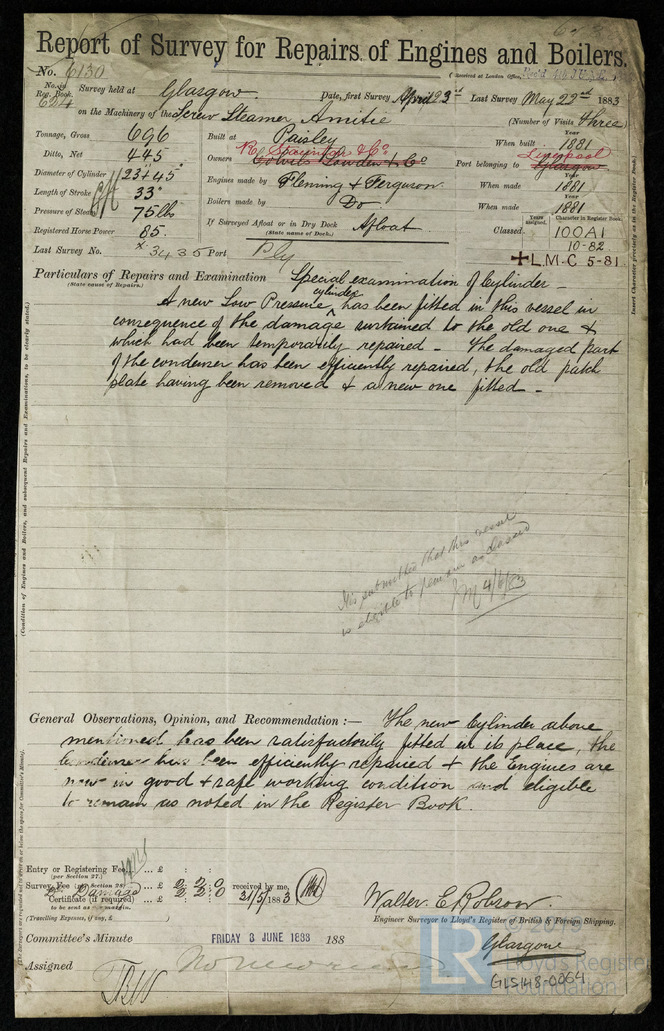 Report of Survey for Repairs of Engines and Boilers.
No. 6130
(Received at London Office
No. in Reg. Book. 624 Survey held at Glasgow. Date, first Survey April 23rd Last Survey May 22nd 1883
on the Machinery of the Screw Steamer Amitie (Number of Visits Three)
Tonnage, Gross 696
Ditto, Net 445
Diameter of Cylinder 23 + 45"
Length of Stroke 33"
Pressure of Steam 75 lbs
Registered Horse Power 85.
Last Survey No. 3435 Port Ply
Built at Paisley
Owners
Engines made by Fleming & Ferguson
Boilers made by Do
If Surveyed Afloat or in Dry Dock Afloat.
(State name of Dock.)
Year
When built 1881
Port belonging to Liverpool Glasgow
Year
When made 1881
Year
When made 1881
Years assigned. Character in Register Book.
Classed 100A1
10-82
L.M.C 5-81
Insert Character precisely as in the Register Book.
Particulars of Repairs and Examination Special examination of Cylinder -
(State cause of Repairs.)
A new Low Pressure cylinder has been fitted in this vessel in
consequence of the damage sustained to the old one &
which had been temporarily repaired - The damaged part
of the condenser has been efficiently repaired, the old patch
plate having been removed & a new one fitted -
(Condition of Engines and Boilers, and subsequent Repairs and Examinations, to be clearly stated.)
It is submitted that this vessel
is eligible to remain as classed
4/6/83
General Observations, Opinion, and Recommendation :— The new Cylinder above
mentioned has been satisfactorily fitted in its place, the
condenser has been efficiently repaired & the Engines are
now in good & safe working condition and eligible
to remain as noted in the Register Book.
Entry or Registering Fee ... £ : :
(per Section 27.)
Survey Fee (per Section 28) ... £ 2 : 2 : 0 received by me,
Damage 2 2 0 31/5/1883
Certificate (if required) ... £
to be sent as per margin.
(Travelling Expenses, if any, £ )
Walter C Robson.
Engineer Surveyor to Lloyd's Register of British & Foreign Shipping.
Glasgow
Committee's Minute FRIDAY 8 JUNE 1883 188
Assigned
LR
Lloyd's Register
Foundation
GLS148-0064